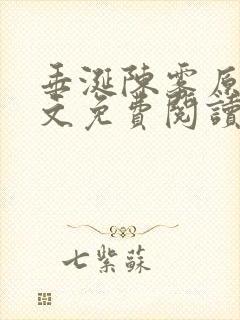 垂涎陳霧原
文免費閱讀
七紫蘇